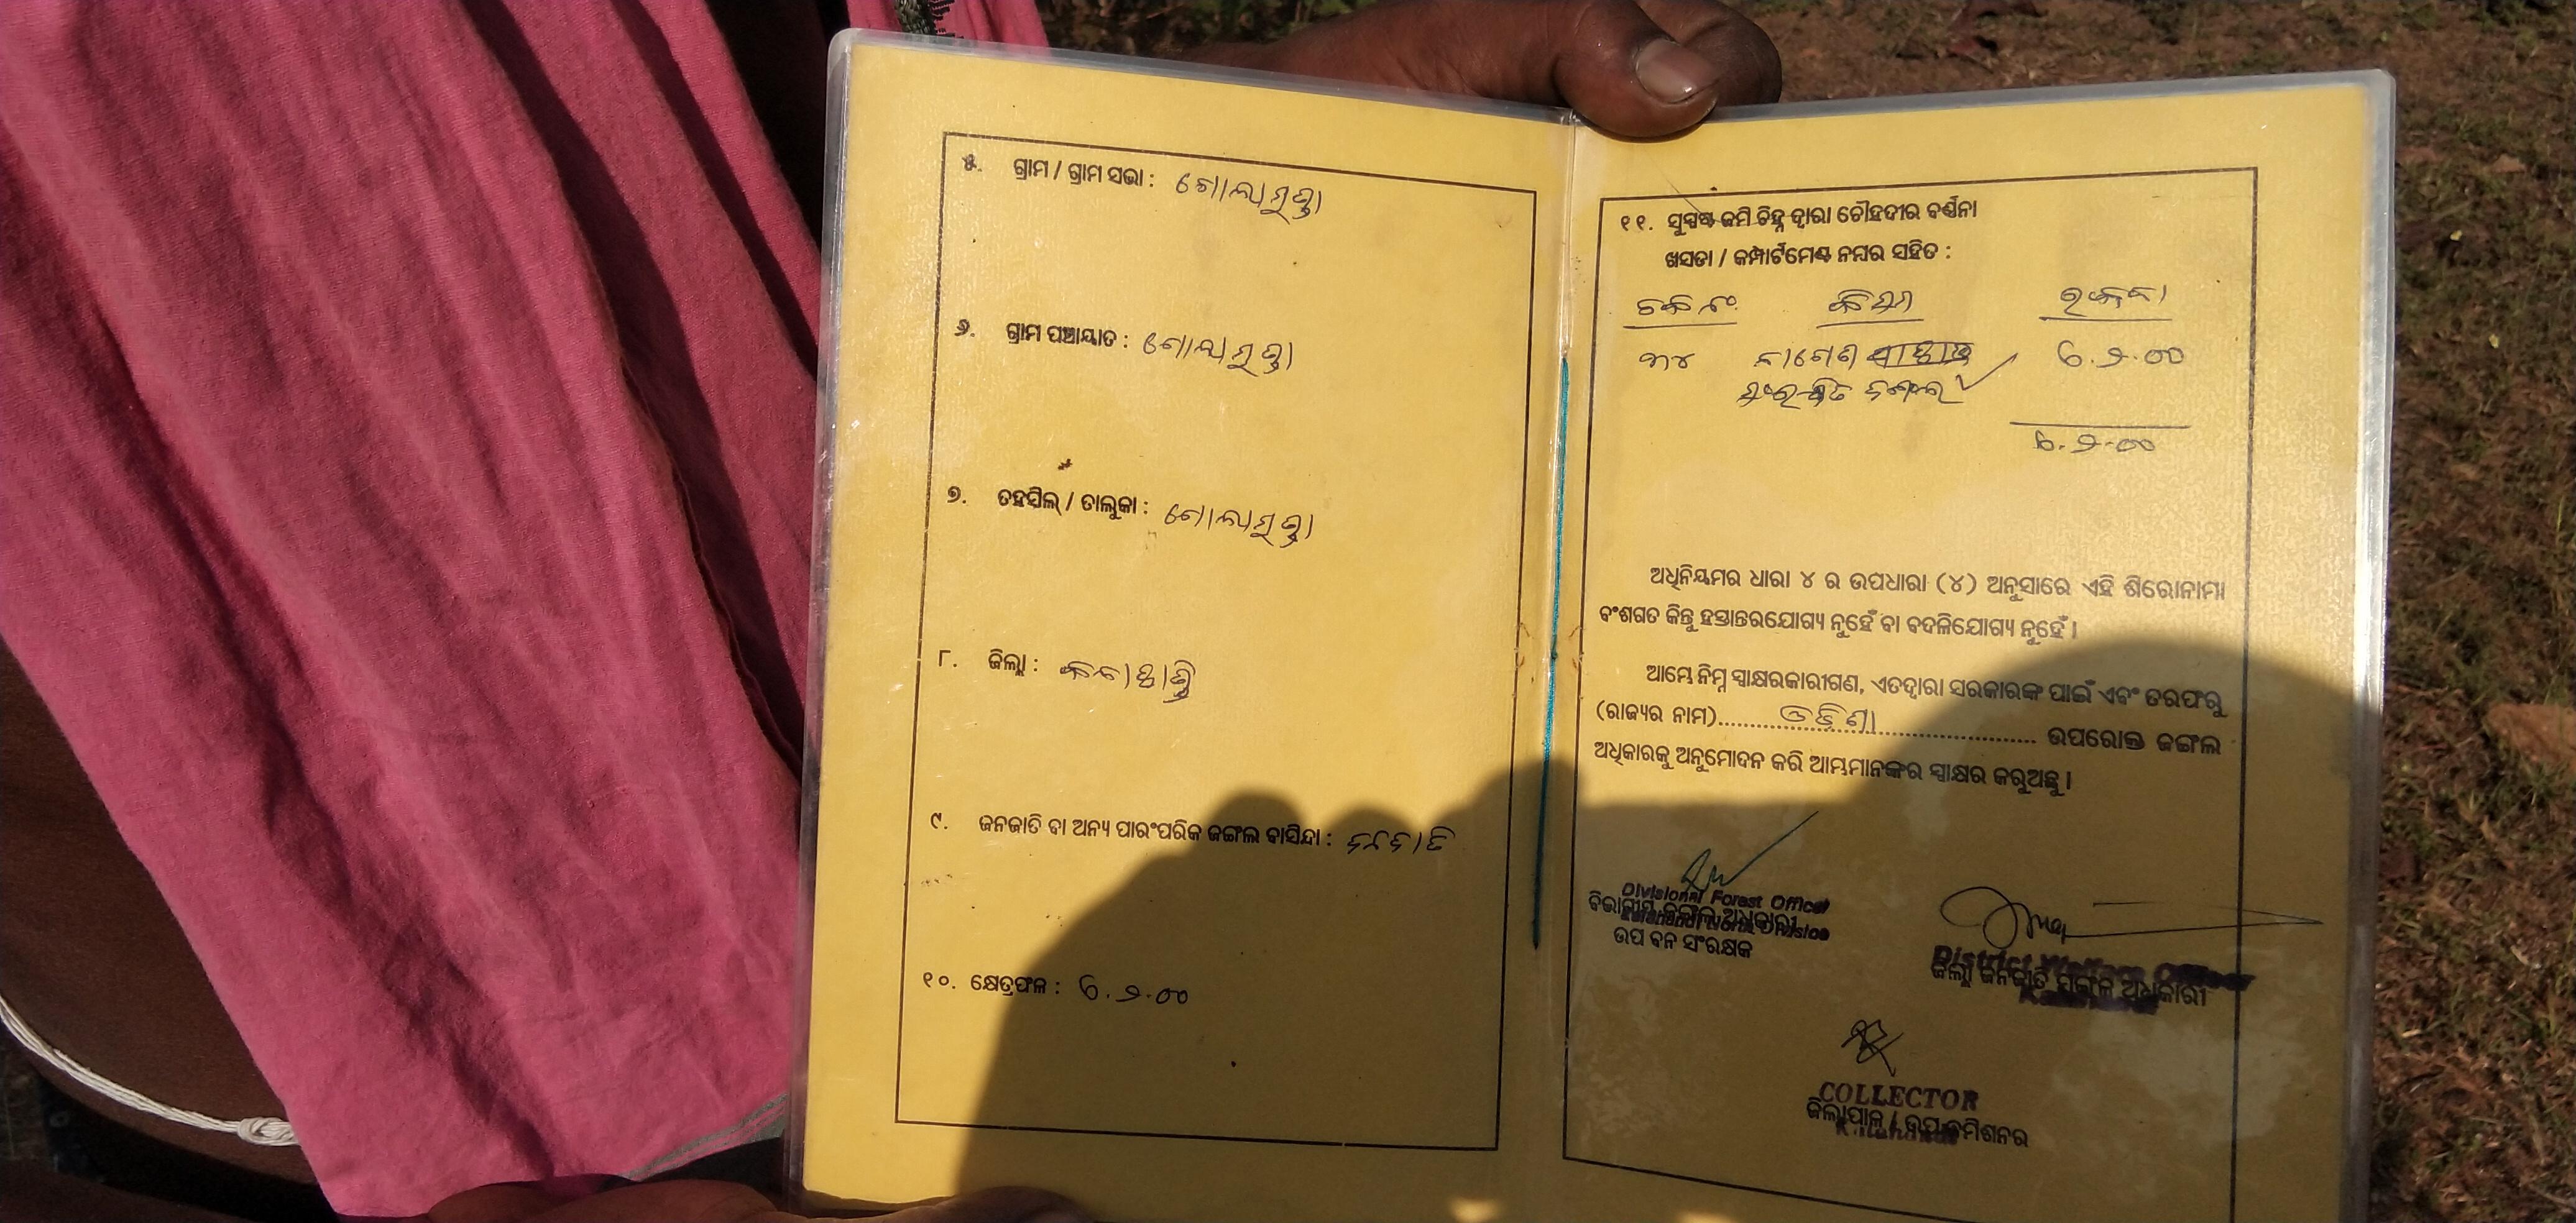 ୫. ଗ୍ରାମ / ଗ୍ରାମ ସଭା : ଗୋଲାମୁଣ୍ଡା
୬. ଗ୍ରାମ ପଞ୍ଚାୟାତ : ଗୋଲାମୁଣ୍ଡା
୭. ତହସିଲ୍ / ତାଲୁକା : ଗୋଲାମୁଣ୍ଡା
୮. ଜିଲ୍ଲା : କଳାହାଣ୍ଡି
୯. ଜନଜାତି ବା ଅନ୍ୟ ପାରଂପରିକ ଜଙ୍ଗଲ ବାସିନ୍ଦା : ଜନଜାତି
୧୦. କ୍ଷେତ୍ରଫଳ : ୬.୨.୦୦
୧୧. ସୁସ୍ପଷ୍ଟ ଜମି ଚିହ୍ନ ଦ୍ୱାରା ଚୌହଦୀର ବର୍ଣ୍ଣନା
ଖସଡା / କମ୍ପାର୍ଟମେଣ୍ଟ ନମ୍ବର ସହିତ :
କିସମ
୩୪ ୬.୨.୦୦
ସଂରକ୍ଷିତ ଜଙ୍ଗଲ
୬.୨.୦୦
ଅଧିନିୟମର ଧାରା ୪ ର ଉପଧାରା (୪) ଅନୁସାରେ ଏହି ଶିରୋନାମା
ବଂଶଗତ କିନ୍ତୁ ହସ୍ତାନ୍ତରଯୋଗ୍ୟ ନୁହେଁ ବା ବଦଳିଯୋଗ୍ୟ ନୁହେଁ ।
ଆମ୍ଭେ ନିମ୍ନ ସ୍ୱାକ୍ଷରକାରୀଗଣ, ଏତଦ୍ଦ୍ୱାରା ସରକାରଙ୍କ ପାଇଁ ଏବଂ ତରଫରୁ
(ରାଜ୍ୟର ନାମ)..........ଓଡ଼ିଶା.......... ଉପରୋକ୍ତ ଜଙ୍ଗଲ
ଅଧିକାରକୁ ଅନୁମୋଦନ କରି ଆମ୍ଭମାନଙ୍କର ସ୍ୱାକ୍ଷର କରୁଅଛୁ ।
Divisional Forest Officer
ବିଭାଗୀୟ ଜଙ୍ଗଲ ଅଧିକାରୀ
Kalahandi North Division
ଉପ ବନ ସଂରକ୍ଷକ
District Welfare Officer
ଜିଲ୍ଲା ଜନଜାତି ମଙ୍ଗଳ ଅଧିକାରୀ
COLLECTOR
ଜିଲ୍ଲାପାଳ / ଉପ କମିଶନର